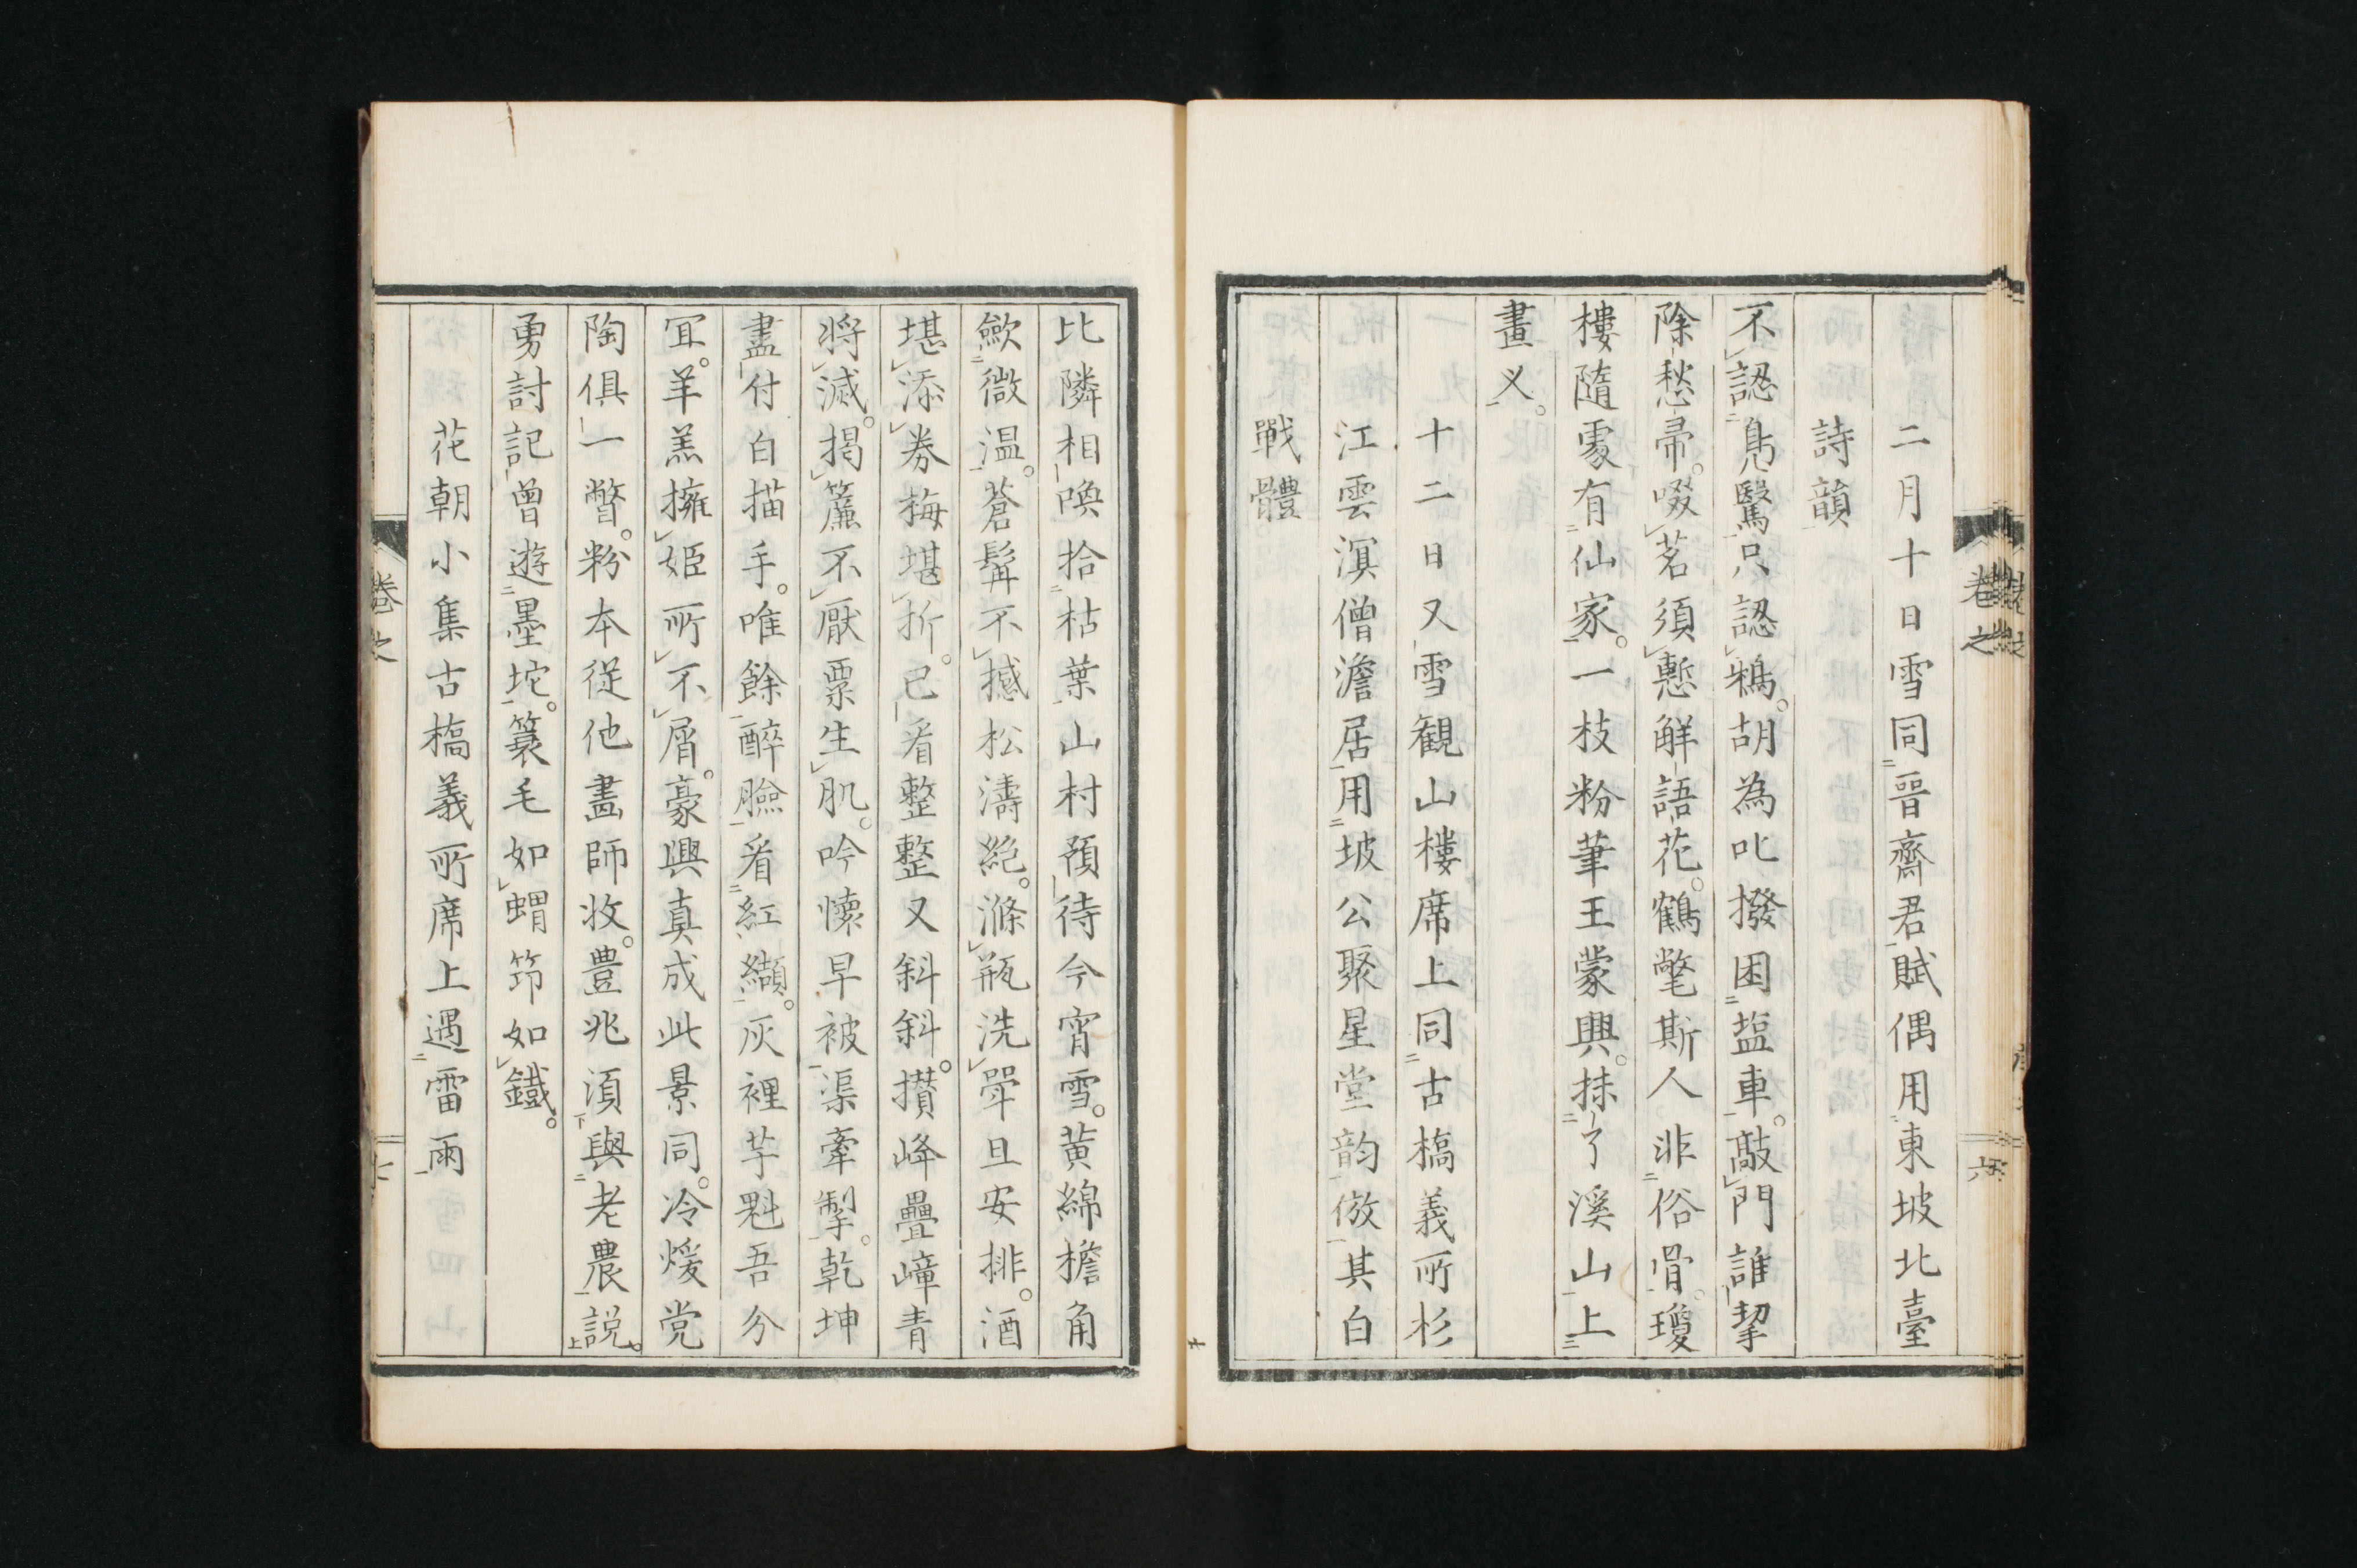 二月十日雪同晋齋君賦偶用東坡北臺
詩韻
不認鳧鷖只認鴉。胡為叱撥困塩車。敲門誰挈
除愁帚。啜茗須慙解語花。鶴氅斯人非俗骨。瓊
樓随處有仙家。一枝粉筆王蒙興。抹了溪山上
畫义。
十二日又雪観山樓席上同古槗義所杉
江雲溟僧澹居用坡公聚星堂韵倣其白
戰體
比隣相喚拾枯葉山村預待今宵雪。黄綿檐角
歛微温。蒼髯不撼松濤絶。滌瓶洗斝且安排。酒
堪添券梅堪折。已看整整又斜斜。攢峰疊嶂青
将滅。揭簾不厭粟生肌。吟懐早被渠牽掣。乾坤
盡付白描手。唯餘醉臉看紅纈。灰裡芋魁吾分
冝。羊羔擁姫所不屑。豪興真成此景同。冷煖党
陶俱一瞥。粉本従他畫師收。豊兆須與老農説。
勇討記曾遊墨坨。簑毛如蝟笻如鐵。
花朝小集古槗義所席上遇雷雨
卷之
六